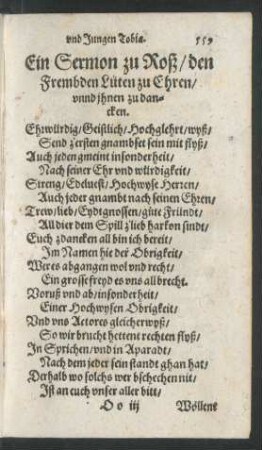 vnd Jungen Tobia. 559
Ein Sermon zu Roß/den
Frembden Lüten zu Ehren/
vnnd jhnen zu dan-
cken.
Ehrwürdig/Geistlich/Hochglehrt/wyß/
Send z'ersten gnambset sein mit flyß/
Auch jeden gmeint insonderheit/
Nach seiner Ehr vnd würdigkeit/
Streng/Edelvest/Hochwyse Herren/
Auch jeder gnambt nach seinen Ehren/
Trew/lieb/Eydtgnossen/gute Fründt/
All dier dem Spill z'lieb harkon sindt/
Euch z'dancken all bin ich bereit/
Im Namen hie der Obrigkeit/
Wer es abgangen wol vnd recht/
Ein grosse freyd es vns all brecht.
Voruß vnd ab/insonderheit/
Einer Hochwysen Obrigkeit/
Vnd vns Actores gleicher wyß/
So wir brucht hettent rechten flyß/
In Sprichen/vnd in Aparadt/
Nach dem jeder sein standt ghan hat/
Derhalb wo solchs wer bschechen nit/
Ist an euch vnser aller bitt/
Oo iij Wöllent